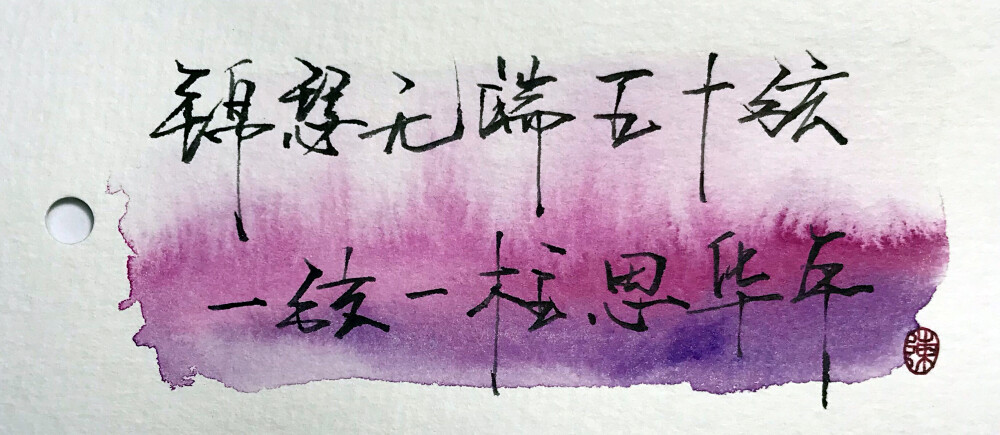 锦瑟无端五十弦
一弦一柱思华年
陈